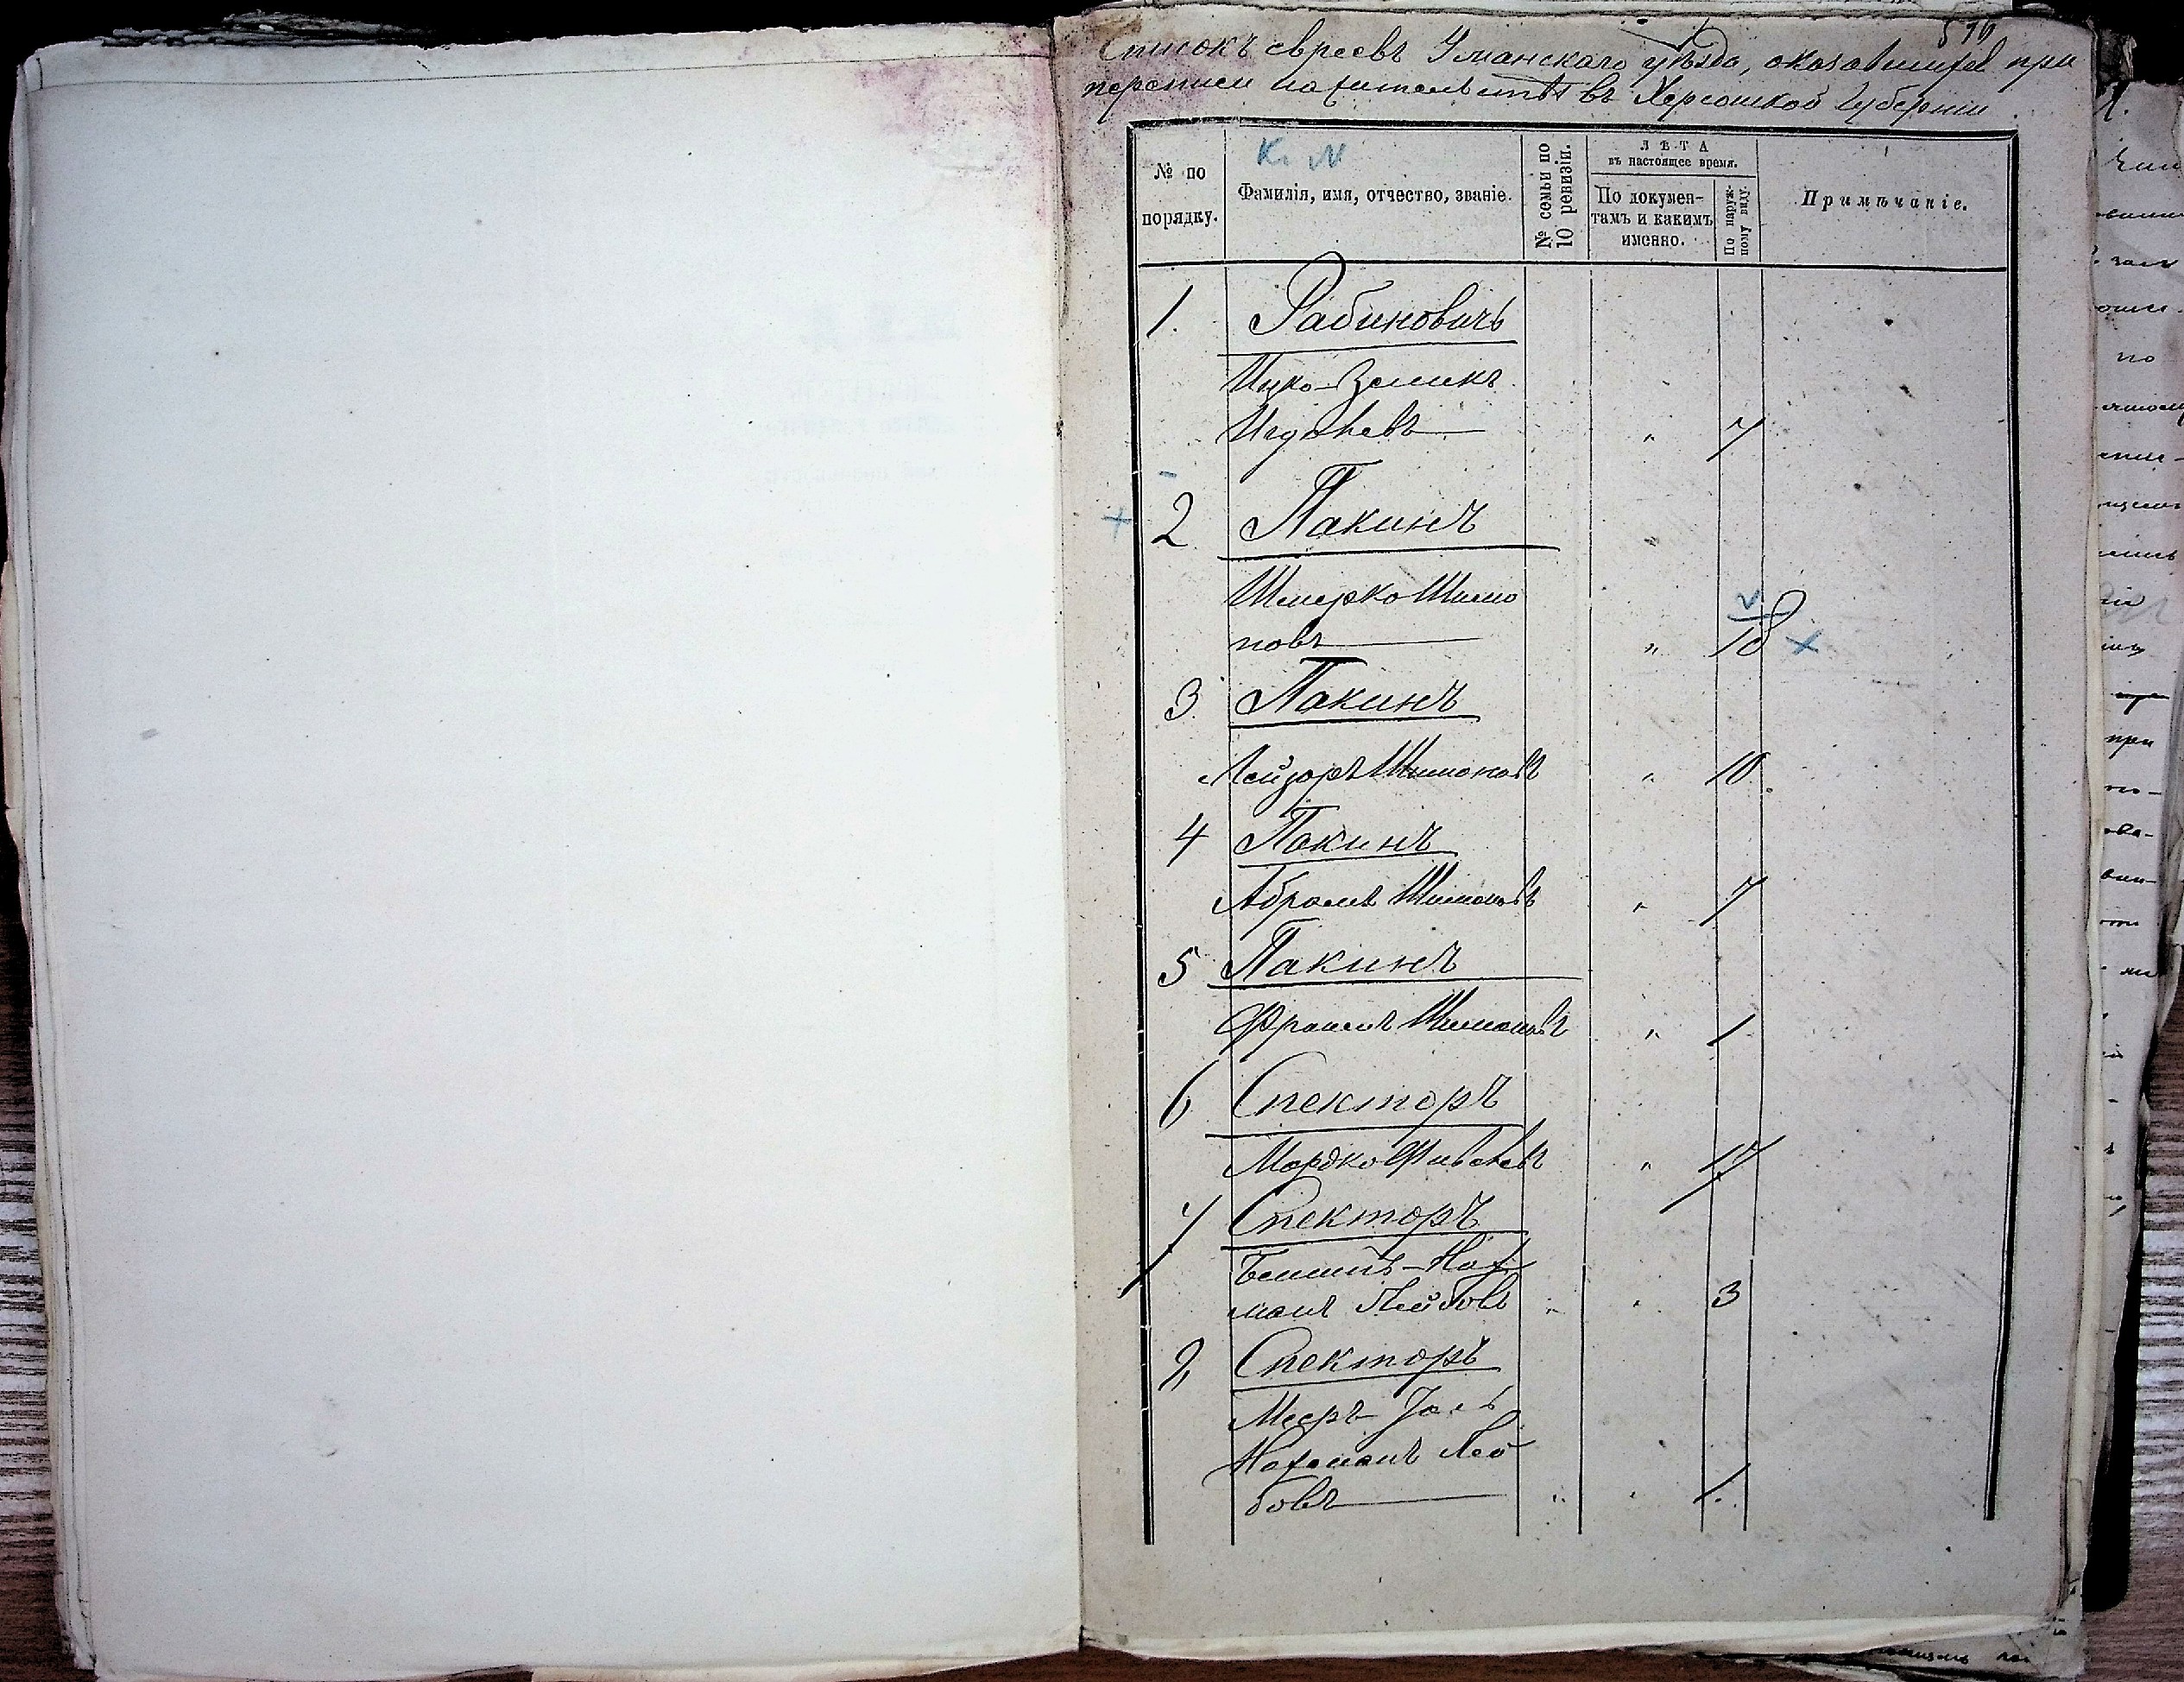 Списокъ евреевъ Уманскаго уѣзда, оказавшихся при
переписи на жительствѣ въ Херсонской Губерніи
К. N
№ по порядку.
Фамилія, имя, отчество, званіе.
№ семьи по 10 ревизіи.
ЛѢТА
въ настоящее время.
По докумен-
тамъ и какимъ
именно.
По наруж-
ному виду.
Примѣчаніе.
1. Рабиновичъ
Ицко-Зеликъ
" 7
2 Пакинъ
Шмерко Шимо
новъ " 18
3. Пакинъ
Лейзоръ Шимоновъ " 10
4 Пакинъ
Абрамъ Шимоновъ " 7
5 Пакинъ
Фроимъ Шимоновъ " 1
6 Спекторъ
Мордко " 17
7 Спекторъ
Нах
манъ Лейбовъ " " 3
8 Спекторъ
Мееръ
Нахманъ Лей
бовъ " " 1.